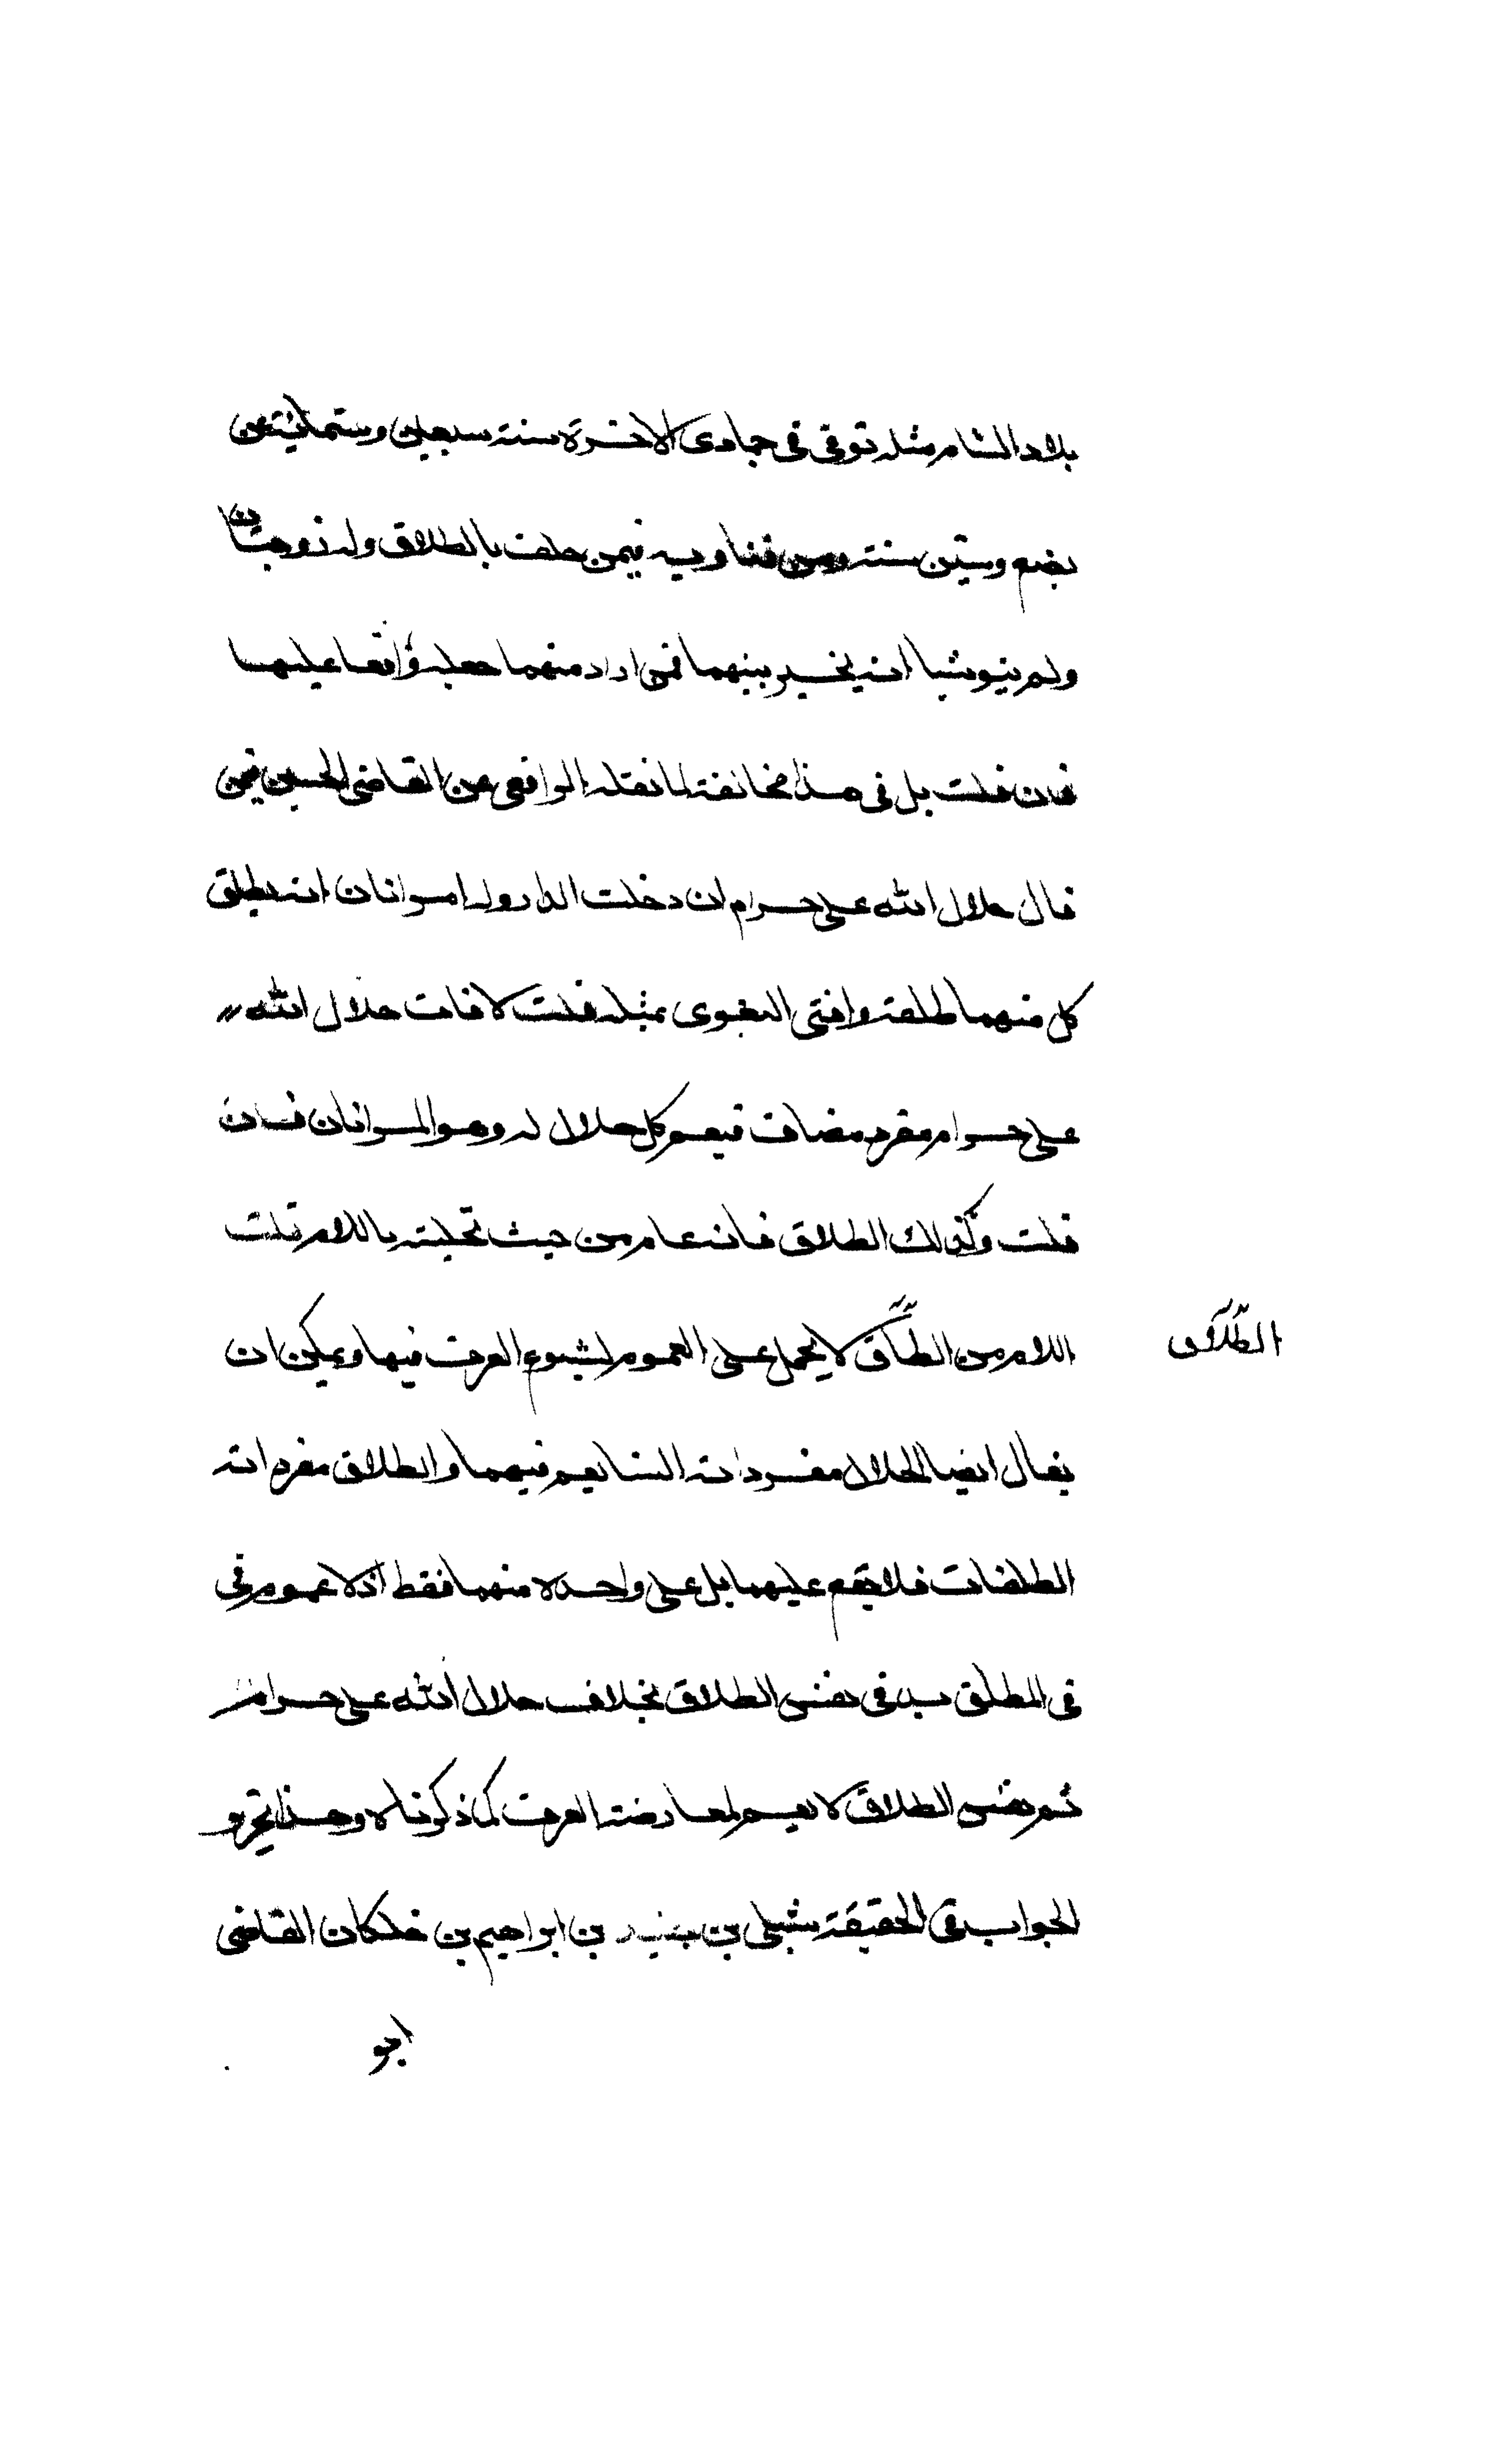 بلاد الشام مثله توفى فى جمادى الاخرة سنة سبعين وستمائة عن
بضع وستين سنة ومن فتاويه فيمن حلف بالطلاق وله زوجتان
ولم ينو شيا انه يخير بينهما فمن اراد منهما جعله واقعا عليها
فان قلت بل فى هذا مخالفة لما نقله الرافعى عن القاضى الحسين فيمن
قال حلال الله على حرام ان دخلت الدار وله امراتان انه يطلق
كل منهما طلقة وافتى البغوى بمثله قلت لا فان حلال الله
على حرام مفرد مضاف فيعم كل حلال له وهو المراتان فان
قلت وكذلك الطلاق فانه عام من حيث تحليته باللام قلت
اللام من الطلاق لا يحمل على العموم لشيوع العرف فيها ويمكن ان
الطلاق
يقال ايضا الحلال مفرداته النسا يعم فيهما والطلاق مفرداته
الطلقات فلا يقع عليهما بل على واحده منهما فقط اذ لا عموم فى
فى المطلق بل فى نفس الطلاق بخلاف حلال الله على حرام
ثم نفس الطلاق لا يعم لمعارضة العرف كما ذكرناه وهذا تحرير
الجواب فى الحقيقة شبلى بن جنيد بن ابراهيم بن خلكان القاضى
ابو